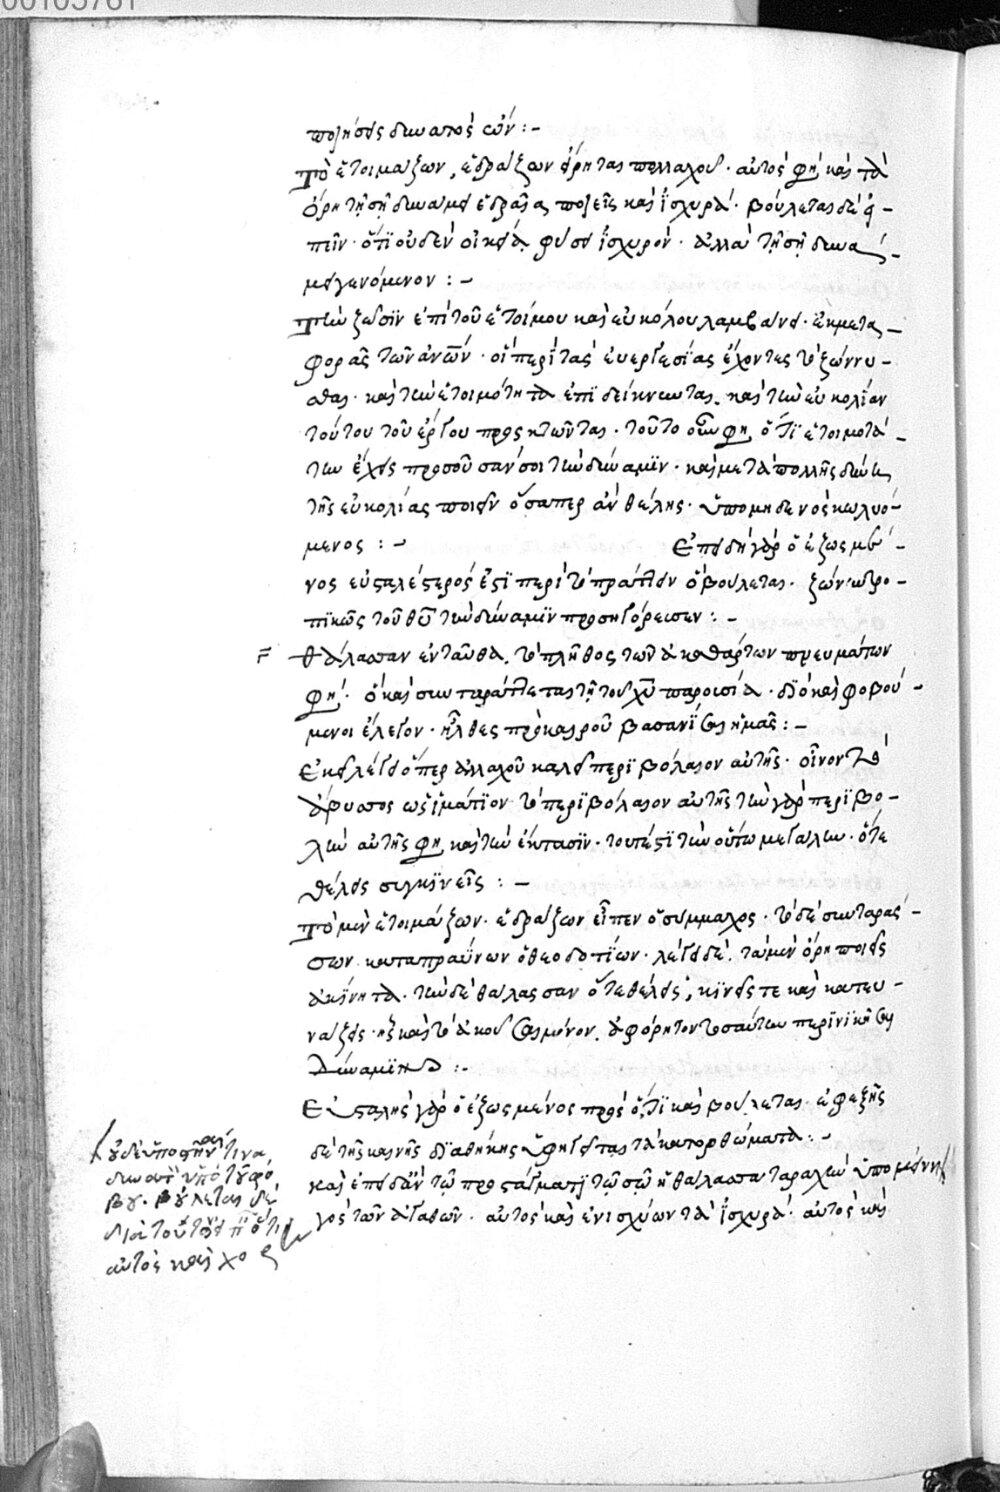 00105761
ποιήσεις δυνατὸς ὤν : –
Τὸ ἑτοιμάζων, ἑδράζων εἴρηται πολλαχοῦ · αὐτὸς φη καὶ τὰ
ὄρη τῇ σῇ δυνάμει ἑδραῖα ποιεῖς καὶ ἰσχυρά · βούλεται δὲ εἰ –
πεῖν · ὅτι οὐδὲν οἰκείᾳ φύσει ἰσχυρόν · ἀλλὰ τῇ σῇ δυνά –
μει γενόμενον : –
Τὴν ζῶσιν ἐπὶ τοῦ ἑτοίμου καὶ εὐκόλου λαμβάνει · ἐκ μετα –
φορᾶς τῶν ἀνῶν · οἱ περί τας ἐνεργείας ἔχοντες τὸ ζώννυ –
σθαι · καὶ τὴν ἑτοιμότητα ἐπιδείκνυνται, καὶ τὴν εὐκολίαν
τούτου τοῦ ἔργου προς κτῶνται · τοῦτο οὖν φη, ὅτι ἑτοιμοτά –
την ἔχεις προσοῦσαν σοι τὴν δύναμιν · καὶ μετὰ πολλῆς
τῆς εὐκολίας ποιεῖν ὅσαπερ ἂν θέλῃς · ὑπο μηδενὸς κωλυό –
μενος : – Ἐπειδὴ γὰρ ὁ ἐζωσμέ –
νος εὐσταλέστερός ἐστι περὶ τὸ πράττειν ὃ βούλεται · ζώνην τρο –
πικῶς τοῦ θυ τὴν δύναμιν προσηγόρευσεν : –
θάλασσαν ἐνταῦθα, τὸ πλῆθος τῶν ἀκαθάρτων πνευμάτων
φη · ὃ καὶ συνταράττεται τῇ τοῦ χυ παρουσίᾳ · διὸ καὶ φοβού –
μενοι ἔλεγον · ἦλθες πρὸ καιροῦ βασανίσαι ἡμᾶς : –
Ἐκεῖ λέγει ὅπερ ἀλλαχοῦ καλεῖ περιβόλαιον αὐτῆς · οἷον τὸ
ἄβυσσος ὡς ἱμάτιον τὸ περιβόλαιον αὐτῆς τὴν γὰρ περιβο –
λὴν αὐτῆς φη, καὶ τὴν ἔκτασιν · τουτέστι τὴν οὕτω μεγάλην · ὅτε
θέλεις συγκινεῖς : –
Τὸ μὲν ἑτοιμάζων · ἑδράζων εἶπεν ὁ σύμμαχος · τὸ δὲ συνταράσ –
σων καταπραΰνων ὁ θεοδοτίων · λέγει δὲ, τὰ μὲν ὄρη ποιεῖς
ἀκίνητα · τὴν δὲ θάλασσαν ὅτε θέλεις, κινεῖς τε καὶ κατευ –
νάζεις · ἧς καὶ τὸ ἀκοῦσαι μόνον, ἀφόρητον τοσαύτην περινικῆσαι
δύναμιν : –
Εὐσταλὴς γὰρ ὁ ἐζωσμένος πρὸς ὅτι καὶ βούλεται · ἐφεξῆς
δὲ τῆς καινῆς διαθήκης ὑφηγεῖται τὰ κατορθώματα : –
καὶ ἐπειδὰν τῷ προστάγματι τῷ σῷ ἡ θάλασσα ταραχὴν ὑπομείνῃ
γὸς τῶν ἀγαθῶν · αὐτὸς καὶ ἐνισχύων τὰ ἰσχυρά · αὐτὸς καὶ